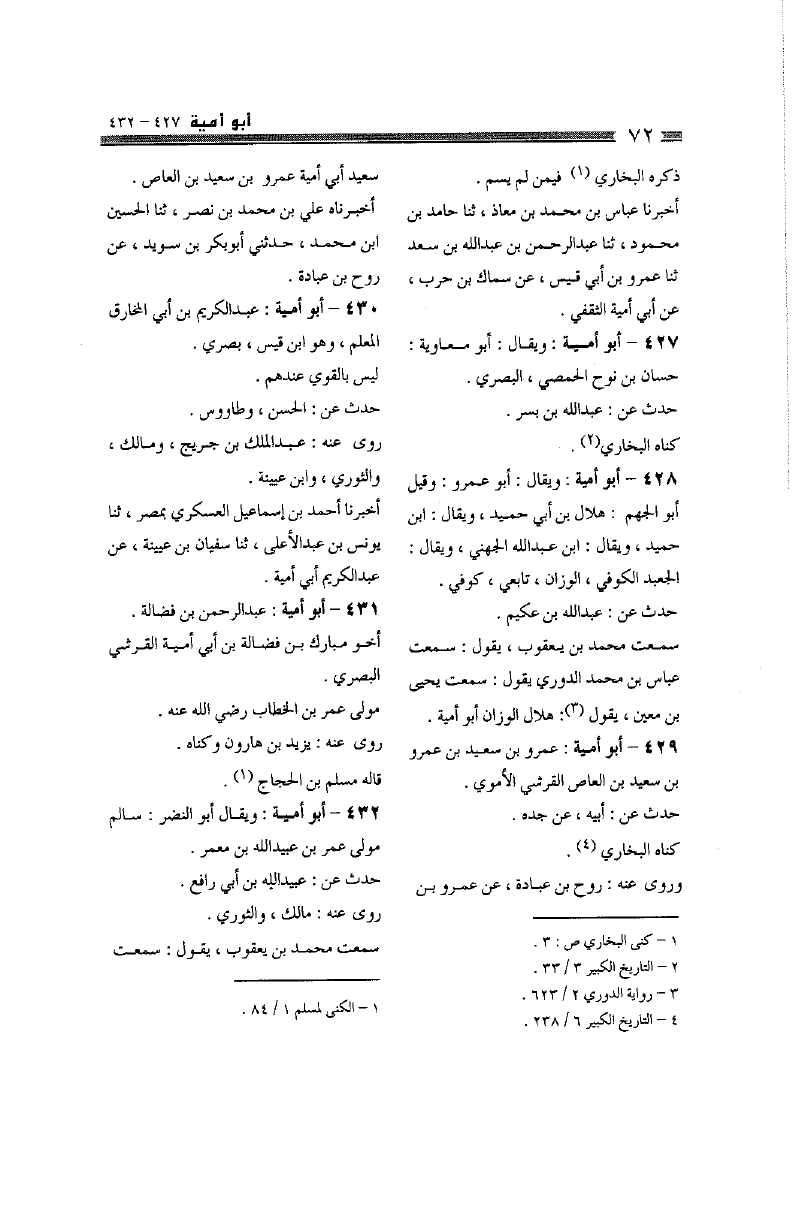 أبو أمية ٤٢٧ – ٤٣٢
٧٢
ذكره البخاري (١) فيمن لم يسم .
أخبرنا عباس بن محمد بن معاذ ، ثنا حامد بن
محمود ، ثنا عبدالرحمن بن عبدالله بن سعد
ثنا عمرو بن أبي قيس ، عن سماك بن حرب ،
عن أبي أمية الثقفي .
٤٢٧ – أبو أمية : ويقال : أبو معاوية :
حسان بن نوح الحمصي ، البصري .
حدث عن : عبدالله بن بسر .
كناه البخاري(٢) .
٤٢٨ – أبو أمية : ويقال : أبو عمرو : وقيل
أبو الجهم : هلال بن أبي حميد ، ويقال : ابن
حميد ، ويقال : ابن عبدالله الجهني ، ويقال :
الجعبد الكوفي ، الوزان ، تابعي ، كوفي .
حدث عن : عبدالله بن عكيم .
سمعت محمد بن يعقوب ، يقول : سمعت
عباس بن محمد الدوري يقول : سمعت يحيى
بن معين ، يقول (٣): هلال الوزان أبو أمية .
٤٢٩ – أبو أمية : عمرو بن سعيد بن عمرو
بن سعيد بن العاص القرشي الأموي .
حدث عن : أبيه ، عن جده .
كناه البخاري (٤) .
وروى عنه : روح بن عبادة ، عن عمرو بن
١ – كنى البخاري ص : ٣ .
٢ – التاريخ الكبير ٣ / ٣٣ .
٣ – رواية الدوري ٢ / ٦٢٣ .
٤ – التاريخ الكبير ٦ / ٢٣٨ .
سعيد أبي أمية عمرو بن سعيد بن العاص .
أخبرناه علي بن محمد بن نصر ، ثنا الحسين
ابن محمد ، حدثني أبوبكر بن سويد ، عن
روح بن عبادة .
٤٣٠ – أبو أمية : عبدالكريم بن أبي المخارق
المعلم ، وهو ابن قيس ، بصري .
ليس بالقوي عندهم .
حدث عن : الحسن ، وطاووس .
روى عنه : عبدالملك بن جريج ، ومالك ،
والثوري ، وابن عيينة .
أخبرنا أحمد بن إسماعيل العسكري بمصر ، ثنا
يونس بن عبدالأعلى ، ثنا سفيان بن عيينة ، عن
عبدالكريم أبي أمية .
٤٣١ – أبو أمية : عبدالرحمن بن فضالة .
أخو مبارك بن فضالة بن أبي أمية القرشي
البصري .
مولى عمر بن الخطاب رضي الله عنه .
روى عنه : يزيد بن هارون وكناه .
قاله مسلم بن الحجاج (١) .
٤٣٢ – أبو أمية : ويقال أبو النضر : سالم
مولى عمر بن عبيدالله بن معمر .
حدث عن : عبيدالله بن أبي رافع .
روى عنه : مالك ، والثوري .
سمعت محمد بن يعقوب ، يقول : سمعت
١ – الكنى لمسلم ١ / ٨٤ .